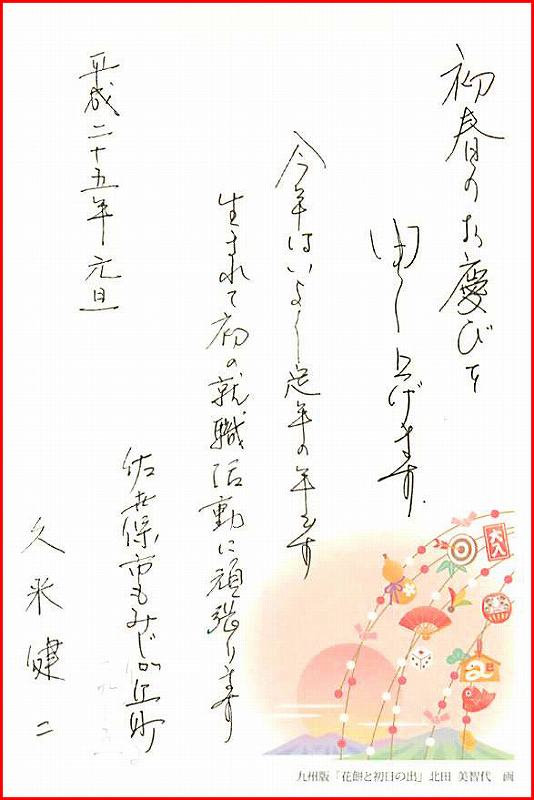 初春のお慶びを
申し上げます。
今年はいよいよ定年の年です
生まれて初の就職活動に頑張ります
平成二十五年元旦
佐世保市もみじが丘町
久米健二
大入
九州版「花餅と初日の出」北田 美智代 画